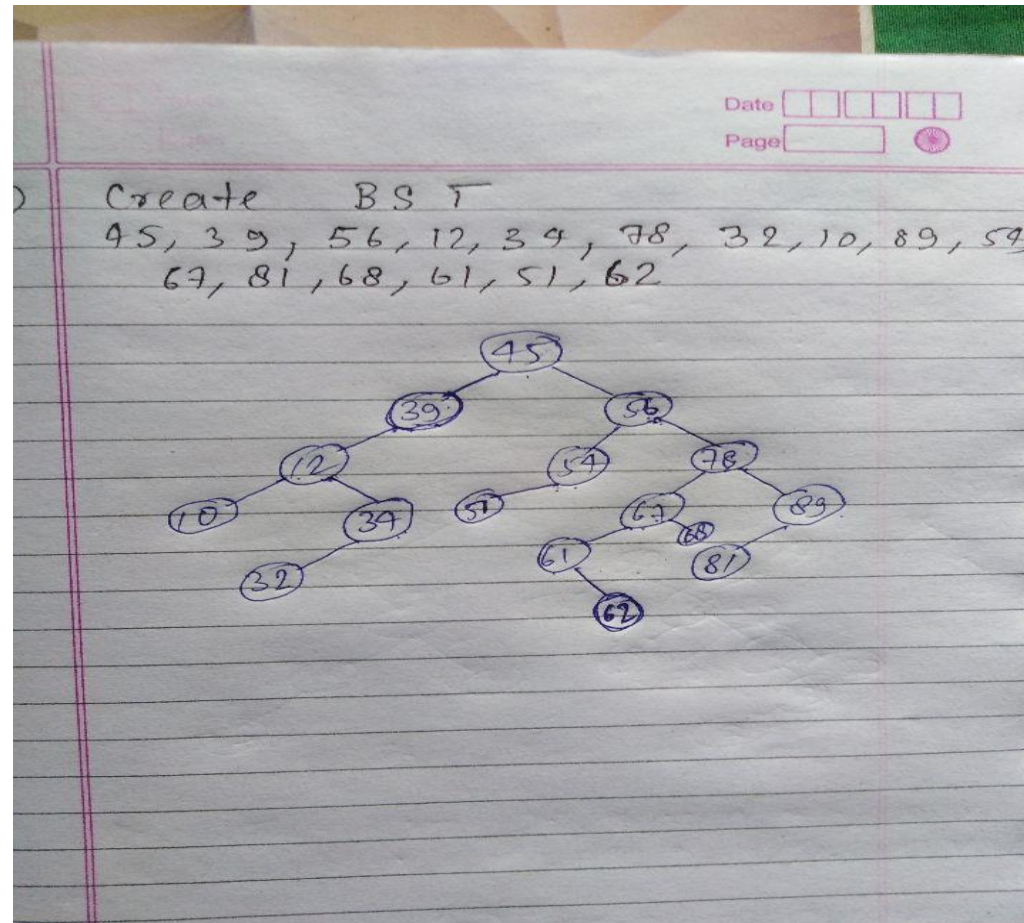 Date
Page
Create BST
45, 39, 56, 12, 34, 78, 32, 10, 89, 54
67, 81, 68, 61, 51, 62
45
39 56
12 54 78
10 34 51 67 68 89
32 61 81
62